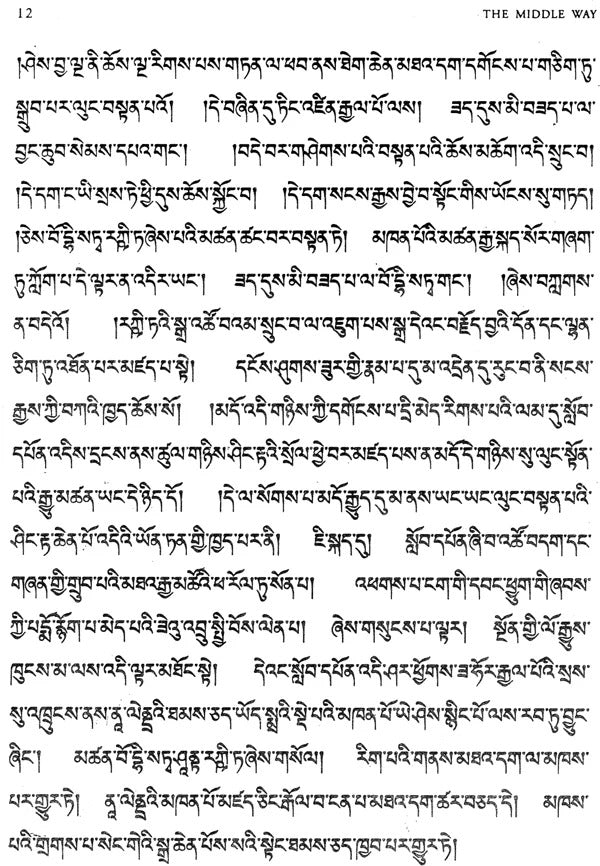 12 THE MIDDLE WAY
།ཤེས་བྱ་ལྔ་ནི་ཆོས་ལྔ་རིགས་པས་གཏན་ལ་ཕབ་ནས་ཐེག་ཆེན་མཐའ་དག་དགོངས་པ་གཅིག་ཏུ་
སྒྲུབ་པར་ལུང་བསྟན་པའོ། །དེ་བཞིན་དུ་ཏིང་འཛིན་རྒྱལ་པོ་ལས། ཟད་དུས་མི་བཟད་པ་ལ་
བྱང་ཆུབ་སེམས་དཔའ་གང་། །བདེ་བར་གཤེགས་པའི་བསྟན་པའི་ཆོས་མཆོག་འདི་སྲུང་བ།
།དེ་དག་ང་ཡི་སྲས་ཏེ་ཕྱི་དུས་ཆོས་སྐྱོང་བ། །དེ་དག་སངས་རྒྱས་བྱེ་བ་སྟོང་གིས་ཡོངས་སུ་གཏད།
།ཅེས་བོ་དྷི་སཏྭ་རཀྵི་ཏ་ཞེས་པའི་མཚན་ཚང་བར་བསྟན་ཏེ། མཁན་པོའི་མཚན་རྒྱ་སྐད་སོར་གཞག་
ཏུ་ཀློག་པ་དེ་ལྟར་ན་འདིར་ཡང་། ཟད་དུས་མི་བཟད་པ་ལ་བོ་དྷི་སཏྭ་གང་། །ཞེས་བཀླགས་
ན་བདེའོ། །རཀྵི་ཏའི་སྒྲ་འཚོ་བའམ་སྲུང་བ་ལ་འཇུག་པས་སྒྲ་དེའང་བརྗོད་བྱའི་དོན་དང་ལྷན་
ཅིག་ཏུ་འཐོན་པར་མཛད་པ་སྟེ། དངོས་ཤུགས་ཟུར་གྱི་རྣམ་པ་དུ་མ་འདྲེན་དུ་རུང་བ་ནི་སངས་
རྒྱས་ཀྱི་བཀའི་ཁྱད་ཆོས་སོ། །མདོ་འདི་གཉིས་ཀྱི་དགོངས་པ་དྲི་མེད་རིགས་པའི་ལམ་དུ་སློབ་
དཔོན་འདིས་དྲངས་ནས་ཚུལ་གཉིས་ཤིང་རྟའི་སྲོལ་ཕྱེ་བར་མཛད་པས་ན་མདོ་དེ་གཉིས་སུ་ལུང་སྟོན་
པའི་རྒྱུ་མཚན་ཡང་དེ་ཉིད་དོ། །དེ་ལ་སོགས་པ་མདོ་རྒྱུད་དུ་མ་ནས་ཡང་ཡང་ལུང་བསྟན་པའི་
ཤིང་རྟ་ཆེན་པོ་འདིའི་ཡོན་ཏན་གྱི་ཁྱད་པར་ནི། ཇི་སྐད་དུ། སློབ་དཔོན་ཞི་བ་འཚོ་བདག་དང་
གཞན་གྱི་གྲུབ་པའི་མཐའ་རྒྱ་མཚོའི་ཕ་རོལ་ཏུ་སོན་པ། འཕགས་པ་ངག་གི་དབང་ཕྱུག་གི་ཞབས་
ཀྱི་པདྨོ་རྙོག་པ་མེད་པའི་ཟེའུ་འབྲུ་སྤྱི་བོས་ལེན་པ། ཞེས་གསུངས་པ་ལྟར། སྔོན་གྱི་ལོ་རྒྱུས་
ཁུངས་མ་ལས་འདི་ལྟར་མཐོང་སྟེ། དེའང་སློབ་དཔོན་འདི་ཤར་ཕྱོགས་ཟ་ཧོར་རྒྱལ་པོའི་སྲས་
སུ་འཁྲུངས་ནས་ནཱ་ལེནྡྲའི་ཐམས་ཅད་ཡོད་སྨྲའི་སྡེ་པའི་མཁན་པོ་ཡེ་ཤེས་སྙིང་པོ་ལས་རབ་ཏུ་བྱུང་
ཞིང་། མཚན་བོ་དྷི་སཏྭ་ཤཱནྟ་རཀྵི་ཏ་ཞེས་གསོལ། རིག་པའི་གནས་མཐའ་དག་ལ་མཁས་
པར་གྱུར་ཏེ། ནཱ་ལེནྡྲའི་མཁན་པོ་མཛད་ཅིང་རྒོལ་བ་ངན་པ་མཐའ་དག་ཚར་བཅད་དེ། མཁས་
པའི་གྲགས་པ་སེང་གེའི་སྒྲ་ཆེན་པོས་སའི་སྟེང་ཐམས་ཅད་ཁྱབ་པར་གྱུར་ཏེ།